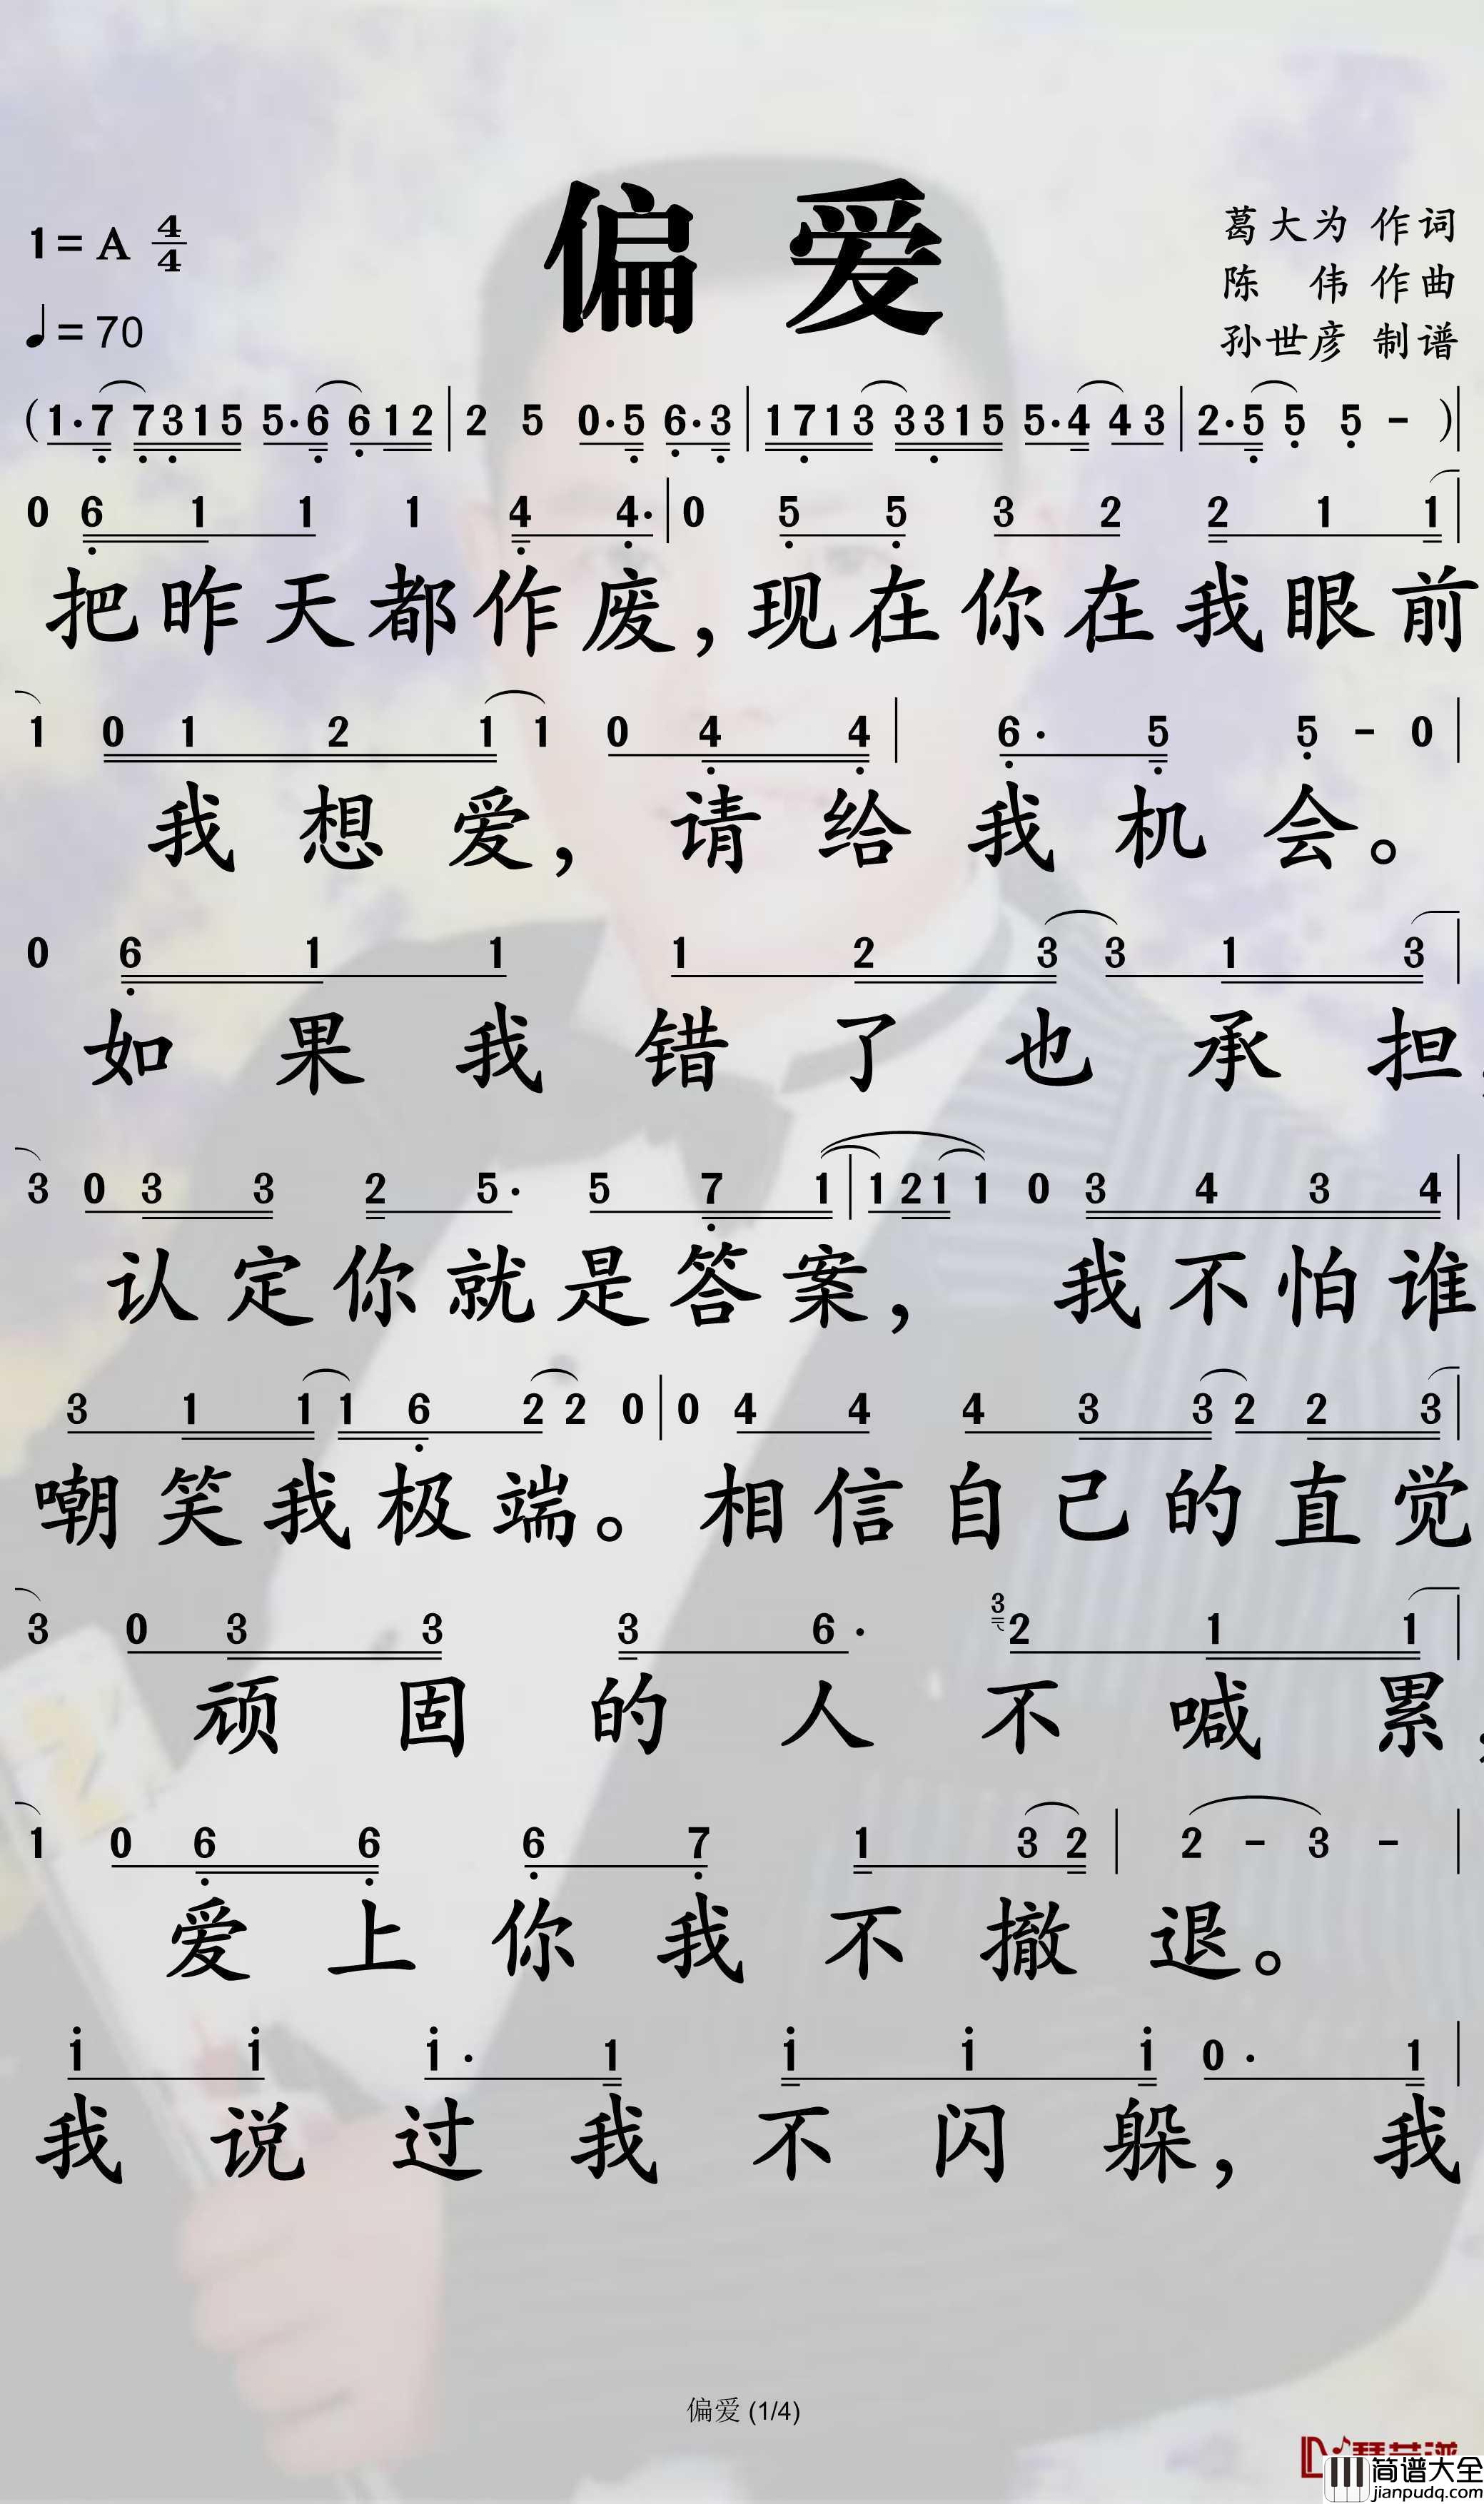 偏爱
1=A 4/4
♩=70
葛大为 作词
陈 伟 作曲
孙世彦 制谱
(1·7 7315 5·6 612 | 2 5 0·5 6·3 | 1713 3315 5·4 43 | 2·5 5 5 - )|
0 6 1 1 1 4 4· | 0 5 5 3 2 2 1 1 |
把昨天都作废,现在你在我眼前
1 0 1 2 1 1 0 4 4 | 6· 5 5 - 0 |
我想爱,请给我机会。
0 6 1 1 1 2 3 3 1 3 |
如果我错了也承担,
3 0 3 3 2 5· 5 7 1 | 1 2 1 1 0 3 4 3 4 |
认定你就是答案,我不怕谁
3 1 1 1 6 2 2 0 | 0 4 4 4 3 3 2 2 3 |
嘲笑我极端。相信自己的直觉
3 0 3 3 3 6· 3 2 1 1 |
顽固的人不喊累,
1 0 6 6 6 7 1 3 2 | 2 - 3 - |
爱上你我不撤退。
i i i· 1 i i i 0· 1 |
我说过我不闪躲,我
偏爱 (1/4)
简谱大全
jianpudq.com